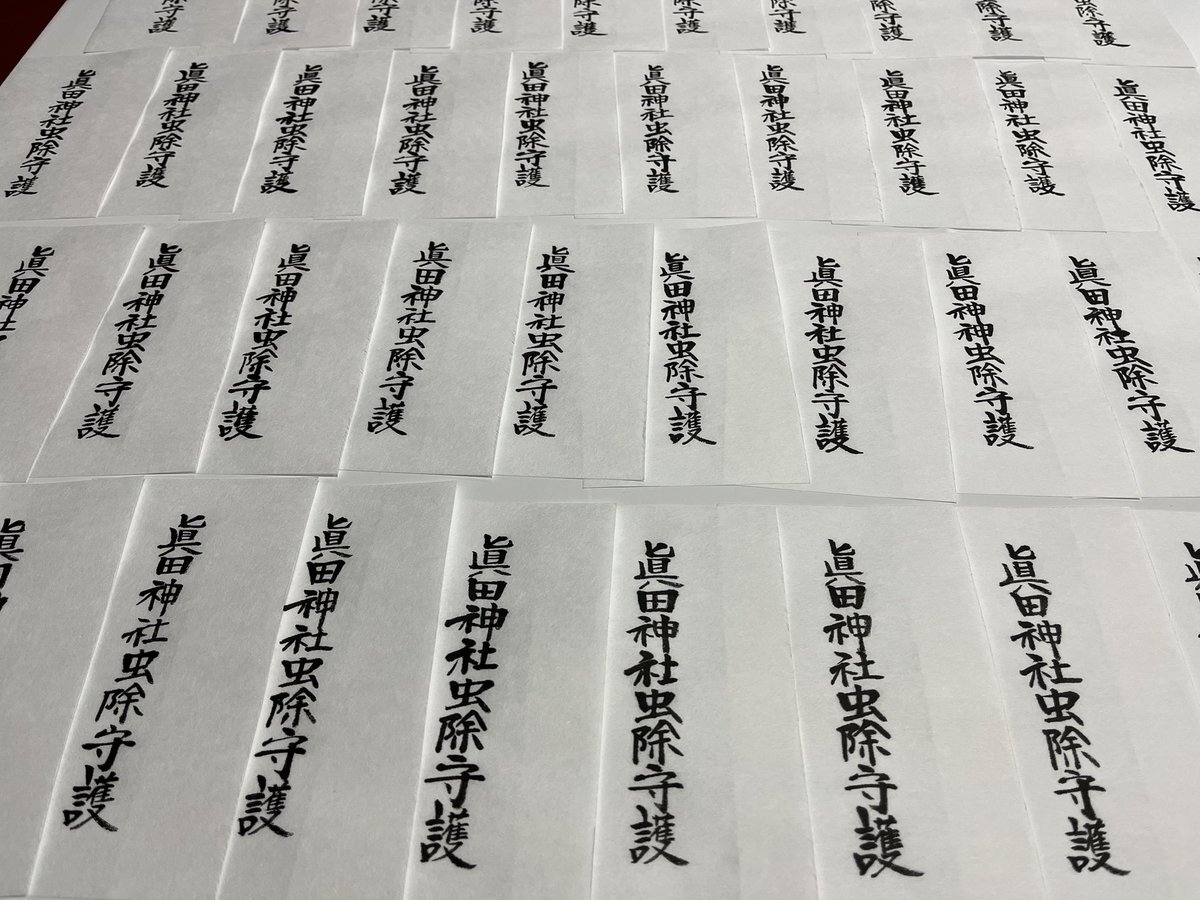 除守護
除守護
除守護
除守護
除守護
除守護
除守護
除守護
除守護
除守護
眞田神社虫除守護
眞田神社虫除守護
眞田神社虫除守護
眞田神社虫除守護
眞田神社虫除守護
眞田神社虫除守護
眞田神社虫除守護
眞田神社虫除守護
眞田神社虫除守護
眞田神社虫除守護
眞田神社
眞田神社虫除守護
眞田神社虫除守護
眞田神社虫除守護
眞田神社虫除守護
眞田神社虫除守護
眞田神社虫除守護
眞田神神虫除守護
眞田神社虫除守護
眞田神
眞田神社虫除守護
眞田神社虫除守護
眞田神社虫除守護
眞田神社虫除守護
眞田神社虫除守護
眞田神社虫除守護